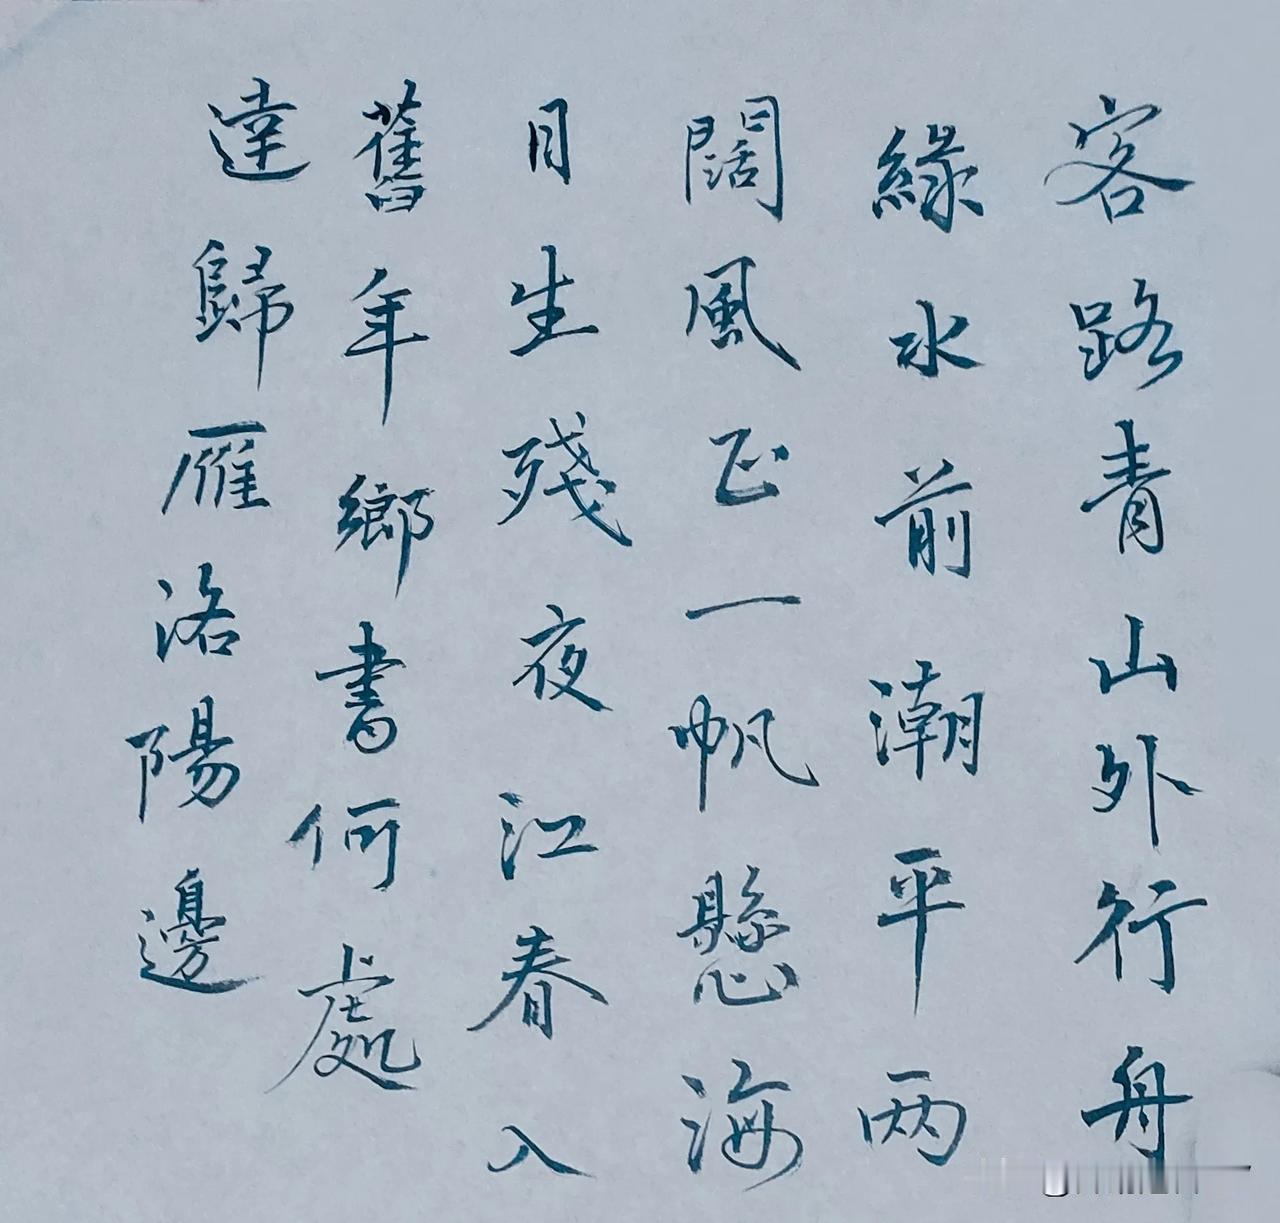 客路青山外行舟
緑水前潮平两
闊風正一帆懸海
日生殘夜江春入
舊年鄉書何處
達歸雁洛陽邊